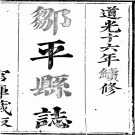 道光十六年續修
鄒平縣誌